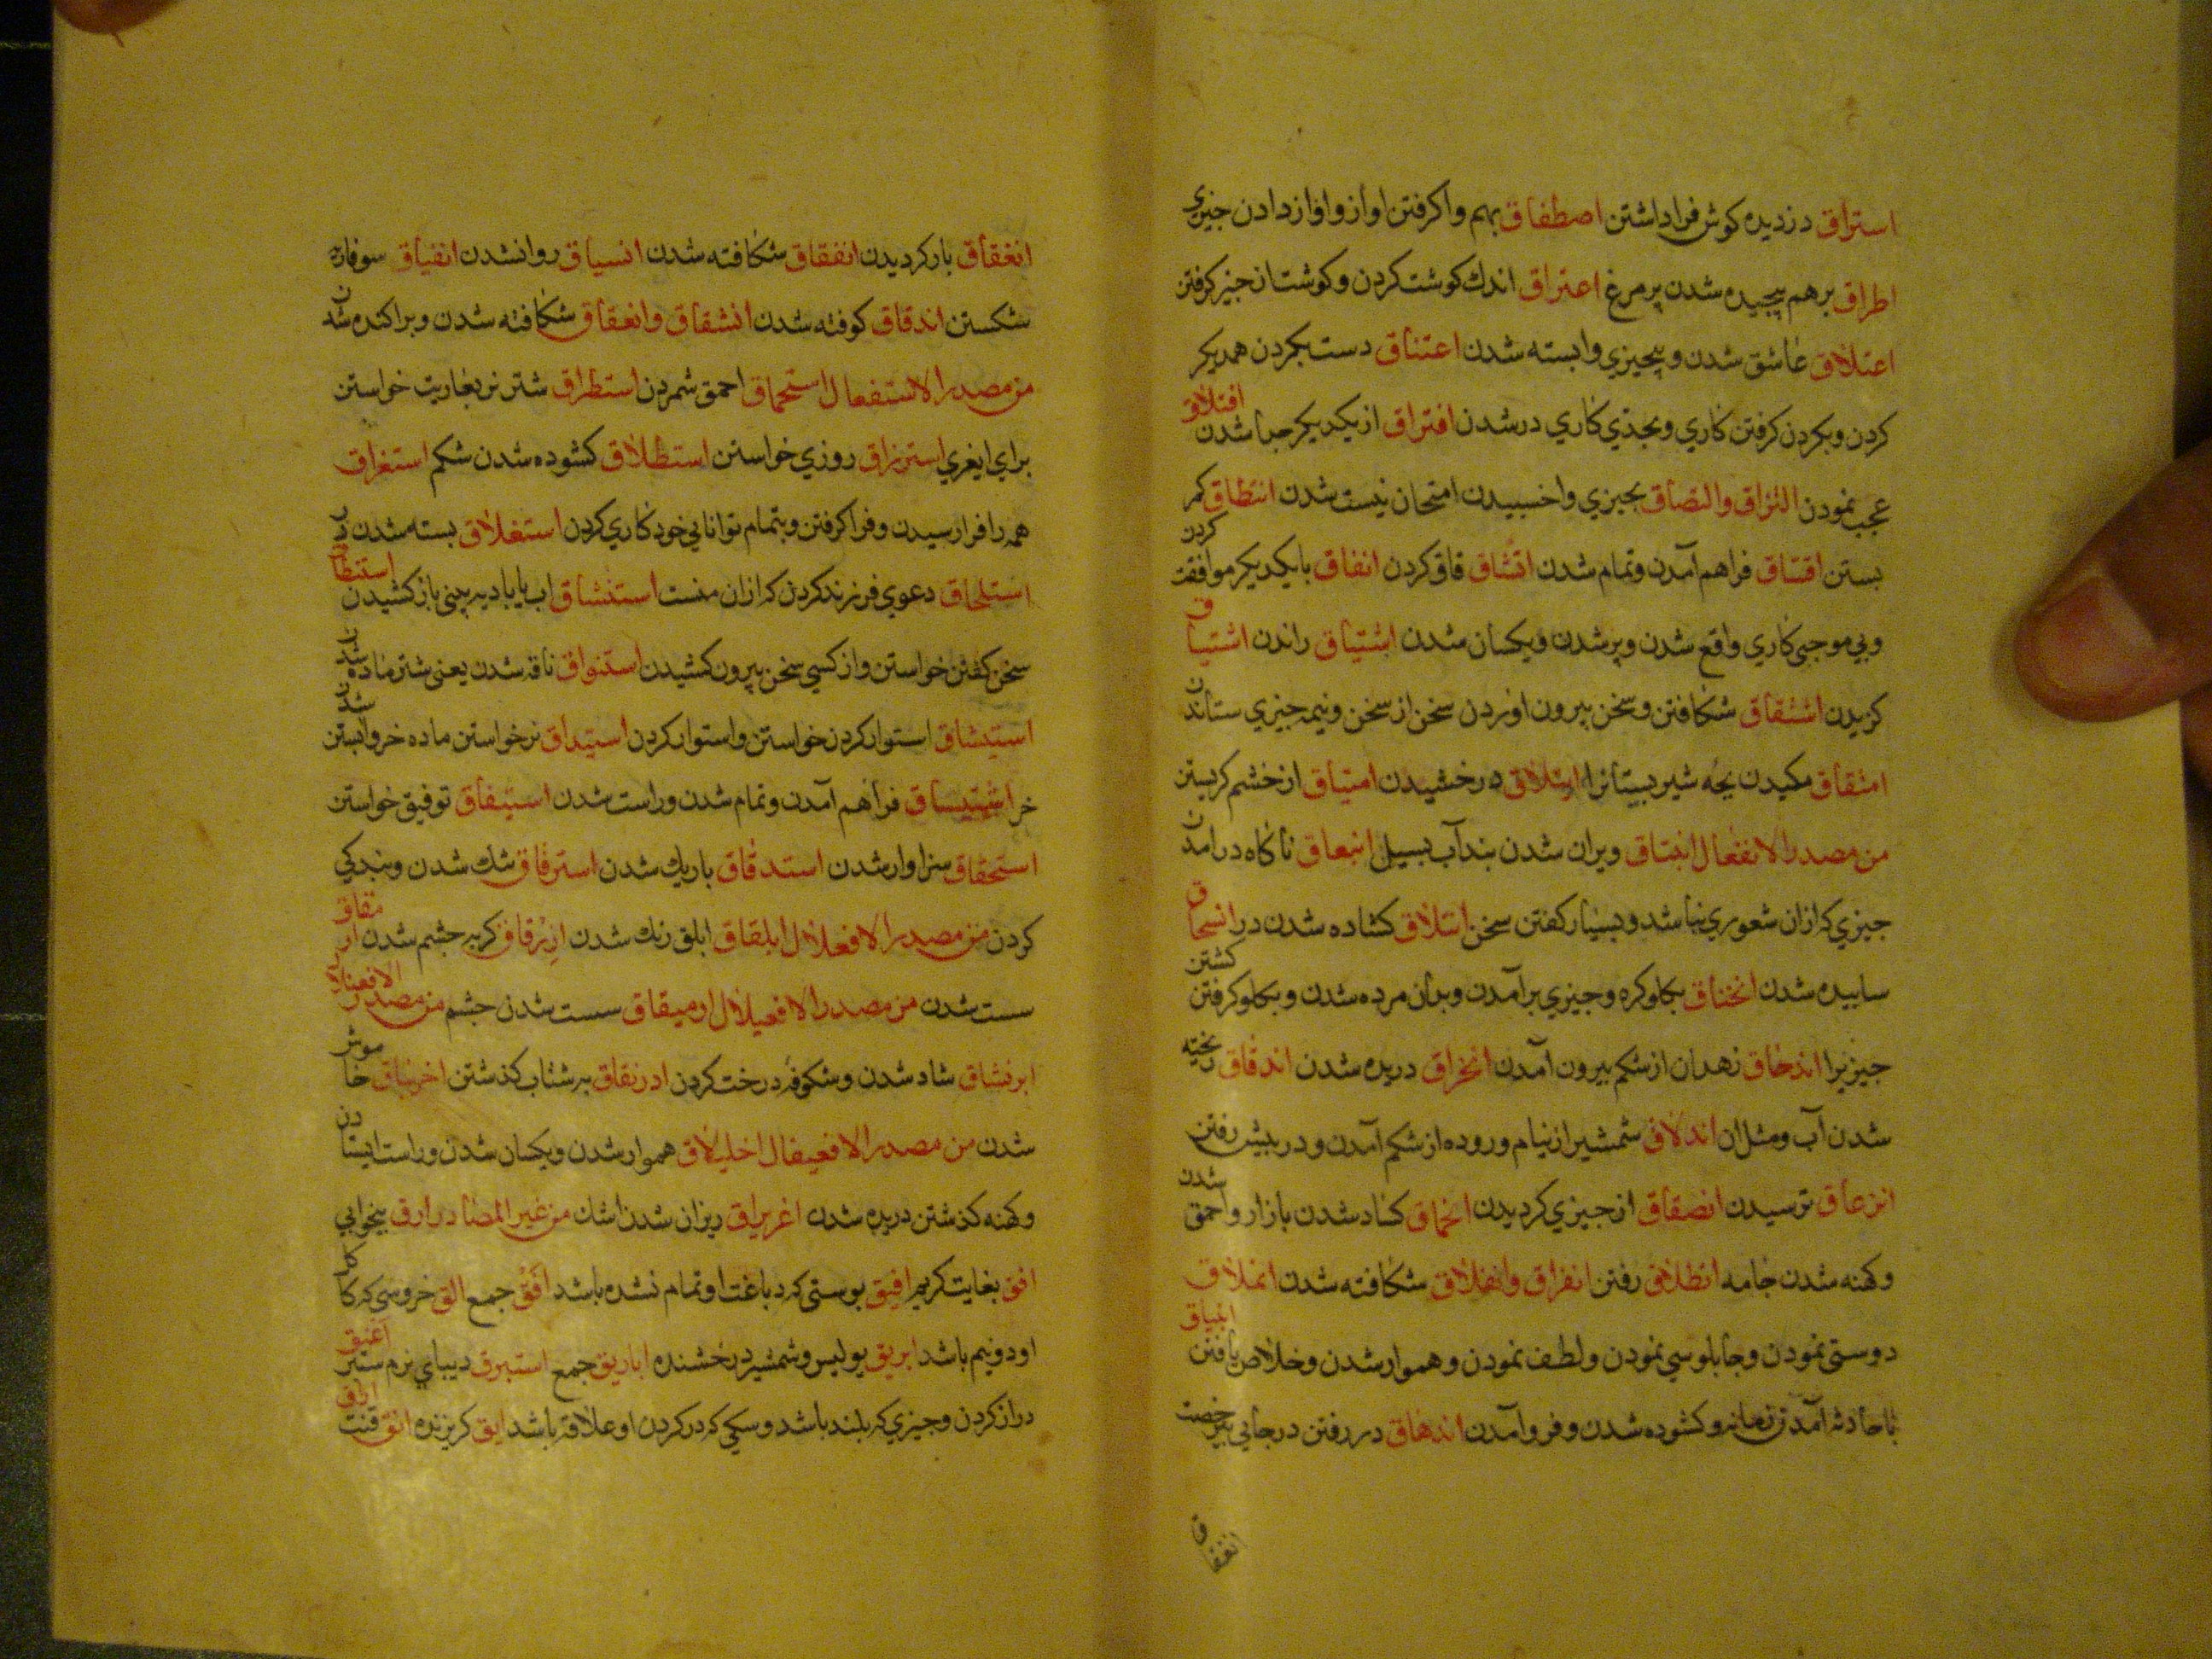 استراق دزدیده کوش فراداشتن اصطفاق بهم واکرفتن اواز واوازدادن جیزي
اطراق برهم پیچیده شدن پر مرغ اعتراق اندك کوشت کردن وکوشت از جیز کرفتن
اعتلاق عاشق شدن وبجیزي وابسته شدن اعتناق دست بکردن همدیکر
کردن وبکردن کرفتن کاري وبجدي کاري درشدن افتراق ازیکدیکر جدا شدن افتلاق
عجب نمودن التزاق والتصاق بجیزي واخسبیدن امتحان نیست شدن انتطاق کمر
بستن اتساق فراهم آمدن وتمام شدن اتفاق بایکدیکر موافقت کردن
وبي موجبي کاري واقع شدن وپر شدن ویکسان شدن استیاق راندن اشتیاق
کزیدن اشتقاق شکافتن وسخن بیرون اوردن سخن از سخن ونیمه جیزي ستاندن
امتقاق مکیدن بچه شیر پستانرا ایتلاق درخشیدن امتیاق از خشم کریستن
من مصدر الانفعال انبثاق ویران شدن بند آب بسیل انبعاق ناکاه درامدن
جیزي که ازان شعوري نباشد وبسیار کفتن سخن کشاده شدن در انسحاق
ساییده شدن انخناق بکلو کره وجیزي برآمدن وبدان مرده شدن وبکلو کرفتن کشتن
جیزیرا اندحاق زهدان ازشکم بیرون آمدن انخراق دریده شدن اندفاق ریخته
شدن آب ومثل ان اندلاق شمشیر از نیام وروده از شکم آمدن ودر پیش رفتن
انزعاق ترسیدن انصفاق از جیزي کردیدن انحماق کساد شدن بازار واحمق شدن
وکهنه شدن جامه انطلاق رفتن انفراق وانفلاق شکافته شدن انملاق
دوستي نمودن وجابلوسي نمودن ولطف نمودن وهموار شدن وخلاص یافتن انبیاق
باحادثه آمدن زمانه وکشوده شدن وفروآمدن اندهاق در رفتن درجایي بیرخصت
انغقاق
انعقاق بار کردیدن انفقاق شکافته شدن انسیاق روانشدن انفیاق سوفاره
شکستن اندقاق کوفته شدن انشقاق وانعقاق شکافته شدن وپراکنده شدن
من مصدر الاستفعال استحماق احمق شمردن استطراق شتر نر بعاریت خواستن
براي استرزاق روزي خواستن استطلاق کشوده شدن شکم استغراق
همه را فرارسیدن وفراکرفتن وبتمام توانایي خود کاري کردن استغلاق بسته شدن در
استلحاق دعوي فرزند کردن که ازان منست استنشاق اب یا باد به بیني باز کشیدن استنطاق
سخن کفتن خواستن واز کسي سخن بیرون کشیدن استنواق ناقه شدن یعني شتر ماده شدن
استیثاق استوار کردن خواستن واستوار کردن استیداق نر خواستن ماده خر وابستن شدن
خر استیساق فراهم آمدن وتمام شدن وراست شدن استیفاق توفیق خواستن
استحقاق سزاوار شدن استدقاق باریك شدن استرقاق تنك شدن وبندکي
کردن من مصدر الافعلال ابلقاق ابلق رنك شدن ازرقاق کربه جشم شدن
سست شدن من مصدر الافعیلال ارمیقاق سست شدن جشم من مصدر الافعنلال
ابرنشاق شاد شدن وشکوفه درخت کردن ادرنفاق به شتاب کذشتن اخرنباق خاموش
شدن من مصدر الافعیعال اخلیلاق هموار شدن ویکسان شدن وراست ایستادن
وکهنه کذشتن دریده شدن اغریراق ریزان شدن اشك من غیر المصادر ارق بیخوابي
افق بغایت کریم افیق پوستي که دباغت او تمام نشده باشد افق جمع الق خروسي که کاکل
او دونیم باشد ابریق بولیس وشمشیر درخشنده اباریق جمع استبرق دیباي نرم ستبر اعنق
دراز کردن وجیزي که بلند باشد وسکي که در کردن او علاقه باشد ابق کریزنده